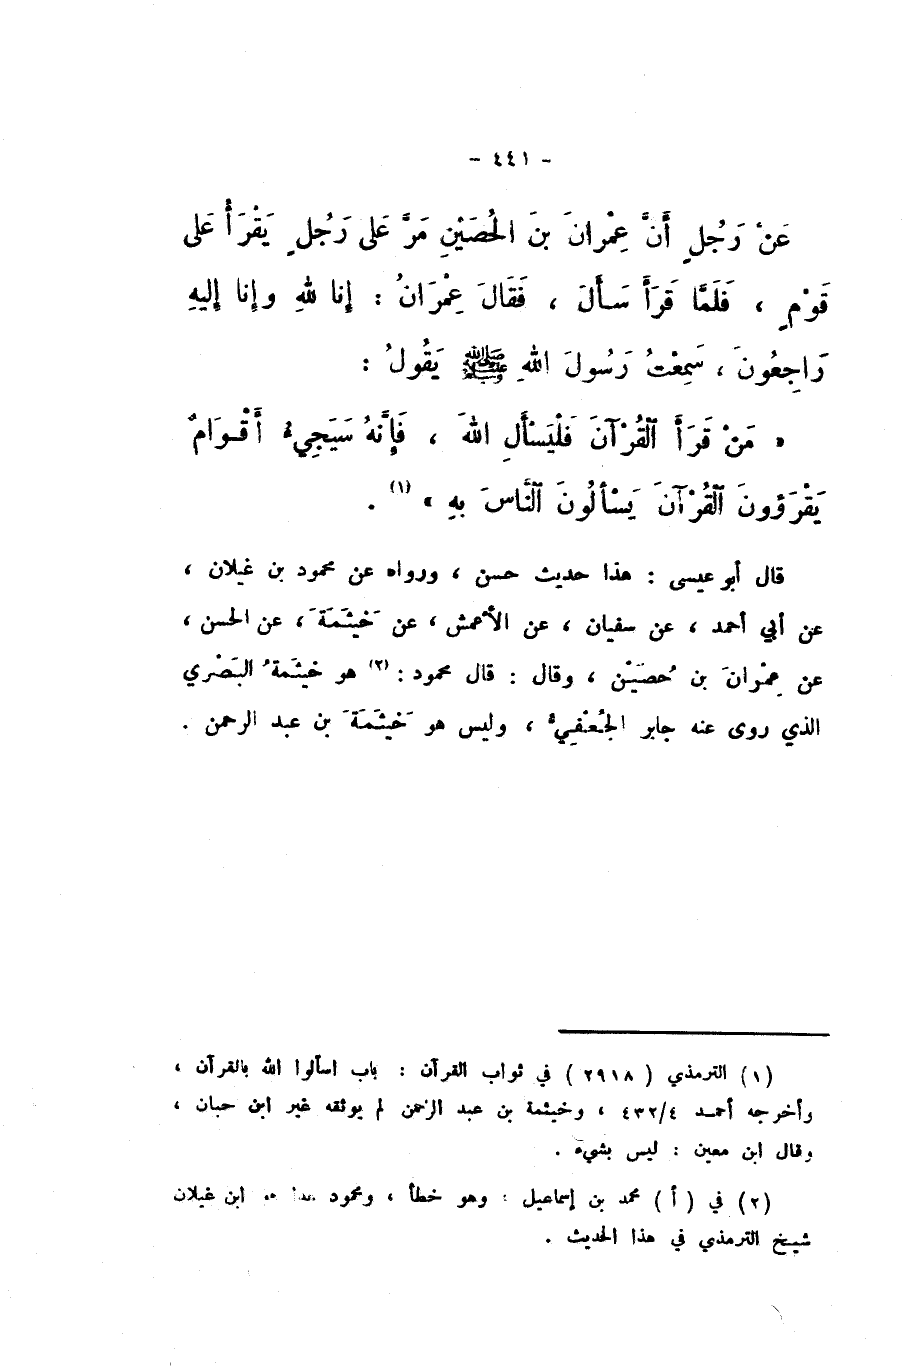 - ٤٤١ -
عَنْ رَجُلٍ أَنَّ عِمْرانَ بنَ الحُصَيْنِ مَرَّ عَلى رَجُلٍ يَقْرَأُ عَلى
قَوْمٍ ، فَلَمَّا قَرَأَ سَأَلَ ، فَقَالَ عِمْرَانُ : إنا للهِ وإنا إليهِ
رَاجِعُونَ ، سَمِعْتُ رَسُولَ اللهِ ﷺ يَقُولُ :
« مَنْ قَرَأَ ٱلقُرْآنَ فَلْيَسْأَلِ اللهَ ، فَإِنَّهُ سَيَجِيءُ أَقْوَامٌ
يَقْرَؤونَ ٱلقُرْآنَ يَسْأَلُونَ ٱلنَّاسَ بِهِ » (١) .
قال أبو عيسى : هذا حديث حسن ، ورواه عن محمود بن غيلان ،
عن أبي أحمد ، عن سفيان ، عن الأعمش ، عن خَيْثَمَةَ ، عن الحسن ،
عن عِمْرانَ بن حُصَيْن ، وقال : قال محمود : (٢) هو خَيْثَمةُ البَصْري
الذي روى عنه جابر الجُعْفِيُّ ، وليس هو خَيْثَمَةَ بن عبد الرحمن .
(١) الترمذي ( ٢٩١٨ ) في ثواب القرآن : باب اسألوا الله بالقرآن ،
وأخرجه أحمد ٤٣٢/٤ ، وخيثمة بن عبد الرحمن لم يوثقه غير ابن حبان ،
وقال ابن معين : ليس بشيء .
(٢) في ( أ ) محمد بن إسماعيل : وهو خطأ ، ومحمود ابن غيلان
شيخ الترمذي في هذا الحديث .